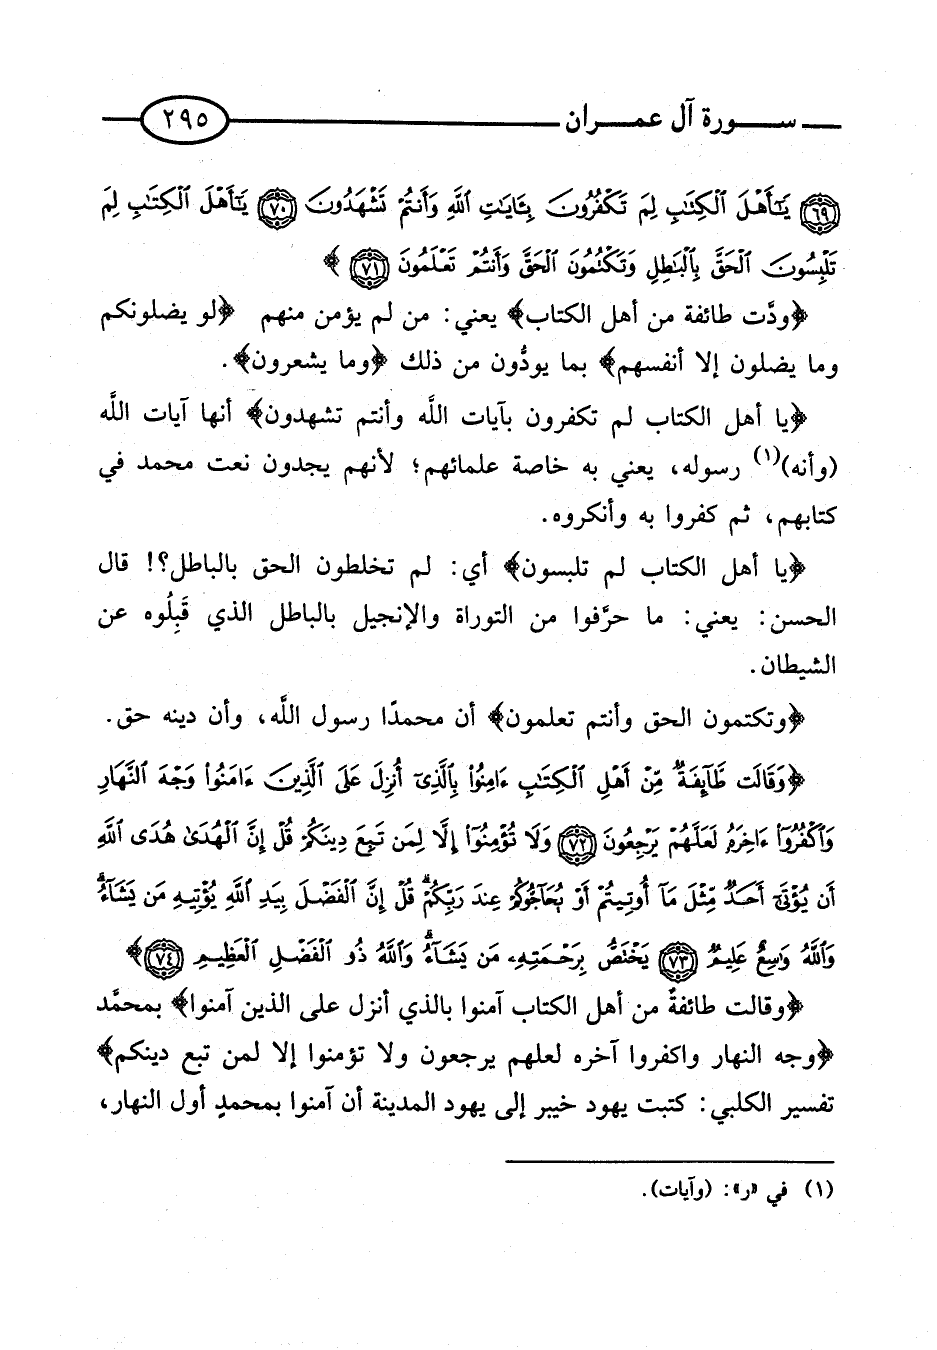 سورة آل عمران ٢٩٥
(٦٩) يَٰٓأَهْلَ ٱلْكِتَٰبِ لِمَ تَكْفُرُونَ بِـَٔايَٰتِ ٱللَّهِ وَأَنتُمْ تَشْهَدُونَ (٧٠) يَٰٓأَهْلَ ٱلْكِتَٰبِ لِمَ
تَلْبِسُونَ ٱلْحَقَّ بِٱلْبَٰطِلِ وَتَكْتُمُونَ ٱلْحَقَّ وَأَنتُمْ تَعْلَمُونَ (٧١)﴾
﴿ودَّت طائفة من أهل الكتاب﴾ يعني: من لم يؤمن منهم ﴿لو يضلونكم
وما يضلون إلا أنفسهم﴾ بما يودُّون من ذلك ﴿وما يشعرون﴾.
﴿يا أهل الكتاب لم تكفرون بآيات اللَّه وأنتم تشهدون﴾ أنها آيات اللَّه
(وأنه)(١) رسوله، يعني به خاصة علمائهم؛ لأنهم يجدون نعت محمد في
كتابهم، ثم كفروا به وأنكروه.
﴿يا أهل الكتاب لم تلبسون﴾ أي: لم تخلطون الحق بالباطل؟! قال
الحسن: يعني: ما حرَّفوا من التوراة والإنجيل بالباطل الذي قَبِلُوه عن
الشيطان.
﴿وتكتمون الحق وأنتم تعلمون﴾ أن محمدًا رسول اللَّه، وأن دينه حق.
﴿وَقَالَت طَّآئِفَةٌ مِّنْ أَهْلِ ٱلْكِتَٰبِ ءَامِنُوا۟ بِٱلَّذِىٓ أُنزِلَ عَلَى ٱلَّذِينَ ءَامَنُوا۟ وَجْهَ ٱلنَّهَارِ
وَٱكْفُرُوٓا۟ ءَاخِرَهُۥ لَعَلَّهُمْ يَرْجِعُونَ (٧٢) وَلَا تُؤْمِنُوٓا۟ إِلَّا لِمَن تَبِعَ دِينَكُمْ قُلْ إِنَّ ٱلْهُدَىٰ هُدَى ٱللَّهِ
أَن يُؤْتَىٰٓ أَحَدٌ مِّثْلَ مَآ أُوتِيتُمْ أَوْ يُحَآجُّوكُمْ عِندَ رَبِّكُمْ ۗ قُلْ إِنَّ ٱلْفَضْلَ بِيَدِ ٱللَّهِ يُؤْتِيهِ مَن يَشَآءُ ۗ
وَٱللَّهُ وَٰسِعٌ عَلِيمٌ (٧٣) يَخْتَصُّ بِرَحْمَتِهِۦ مَن يَشَآءُ ۗ وَٱللَّهُ ذُو ٱلْفَضْلِ ٱلْعَظِيمِ (٧٤)﴾
﴿وقالت طائفةٌ من أهل الكتاب آمنوا بالذي أنزل على الذين آمنوا﴾ بمحمَّد
﴿وجه النهار واكفروا آخره لعلهم يرجعون ولا تؤمنوا إلا لمن تبع دينكم﴾
تفسير الكلبي: كتبت يهود خيبر إلى يهود المدينة أن آمنوا بمحمدٍ أول النهار،
(١) في «ر»: (وآيات).